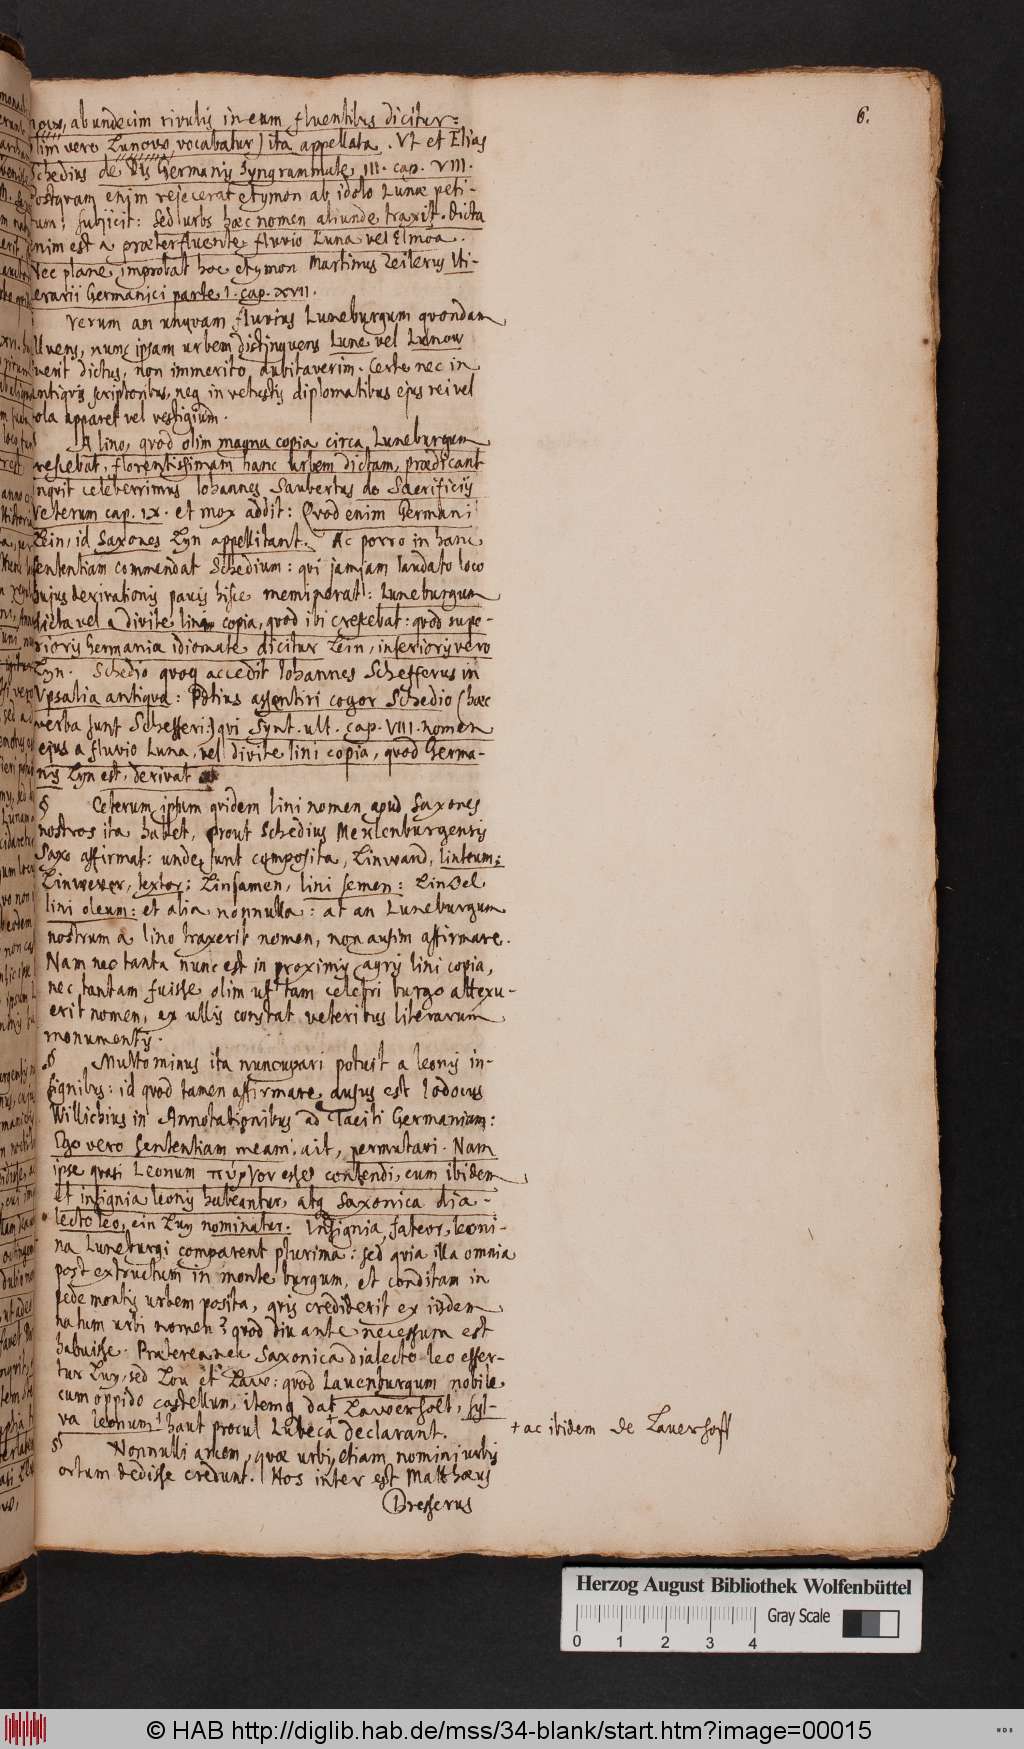 6.
ab undecim rivulis in eum fluentibus dicitur:
olim vero Lunovv vocabatur) ita appellata. Ut et Elias
Schedius de Dis Germanis Syngrammate III. cap. VIII.
postqvam enim rejecerat etymon ab idolo Lunæ peti-
tum; subjicit: sed urbs hæc nomen aliunde traxit. dicta
enim est a præterfluente fluvio Luna vel Elmoa.
Nec plane improbat hoc etymon Martinus Zeilerus Iti-
nerarii Germanici parte I. cap. XVII.
Verum an unqvam fluvius Luneburgum qvondam
alluens, nunc ipsam urbem distinguens Lune vel Lunow
fuerit dictus, non immerito dubitaverim. Certe nec in
antiqvis scriptoribus, neq in vetustis diplomatibus ejus rei vel
sola apparet vel vestigium.
A lino, qvod olim magna copia circa Luneburgum
crescebat, florentissimam hanc urbem dictam, prædicant
inqvit celeberrimus Iohannes Saubertus de Sacrificiis
veterum cap. IX. et mox addit: Qvod enim Germani
Lein, id Saxones Lyn appellitant. Ac porro in hanc
sententiam commendat Schedium: qvi jamjam laudato loco
hujus derivationis paucis hisce meminerat: Luneburgum
dicta vel a divite lini copia, qvod ibi crescebat: qvod supe-
rioris Germaniæ idiomate dicitur Lein, inferioris vero
Lyn. Schedio qvoq accedit Iohannes Schefferus in
Upsalia antiqva: Potius assentiri cogor Schedio (hæc
verba sunt Schefferi:) qvi Synt. ult. cap. VIII. nomen
ejus a fluvio Luna, vel divite lini copia, qvod Germa-
nis Lyn est, derivat
§ Ceterum ipsum qvidem lini nomen apud Saxones
nostros ita habet, prout Schedius Meklenburgensis
Saxo affirmat: unde sunt composita, Linwand, linteum:
Linwever, textor: Linsamen, lini semen: LinOel
lini oleum: et alia nonnulla: at an Luneburgum
nostrum a lino traxerit nomen, non ausim affirmare.
Nam nec tanta nunc est in proximis agris lini copia,
nec tantam fuisse olim ut tam celebri burgo attexu-
erit nomen, ex ullis constat veteribus literarum
monumentis.
§ Multo minus ita nuncupari potuit a leonis in-
signibus: id qvod tamen affirmare ausus est Iodocus
Willichius in Annotationibus ad Taciti Germaniam:
Ego vero sententiam meam, ait, permutavi. Nam
ipse qvasi Leonum πύργον esse contendi, cum ibidem
et insignia leonis habeantur, atq Saxonica dia-
lecto leo, ein Luy nominatur. Insignia, fateor, leoni-
na Luneburgi comparent plurima: sed qvia illa omnia
post extructum in monte burgum, et conditam in
pede montis urbem posita, qvis crediderit ex iisdem
natum urbi nomen? qvod diu ante necessum est
habuisse. Præterea nec Saxonica dialecto leo effer-
tur Luy, sed Lou et Lavv: qvod Lavenburgum nobile
cum oppido castellum, itemq dat + Lavverholt, syl-
va leonum haut procul Lubeca declarant.
+ ac ibidem de Lauerhoff
§ Nonnulli arcem, qvæ urbi, etiam nomini urbis
ortum dedisse credunt. Hos inter est Matthæus
Dresserus
Herzog August Bibliothek Wolfenbüttel
Gray Scale
0 1 2 3 4
© HAB http://diglib.hab.de/mss/34-blank/start.htm?image=00015